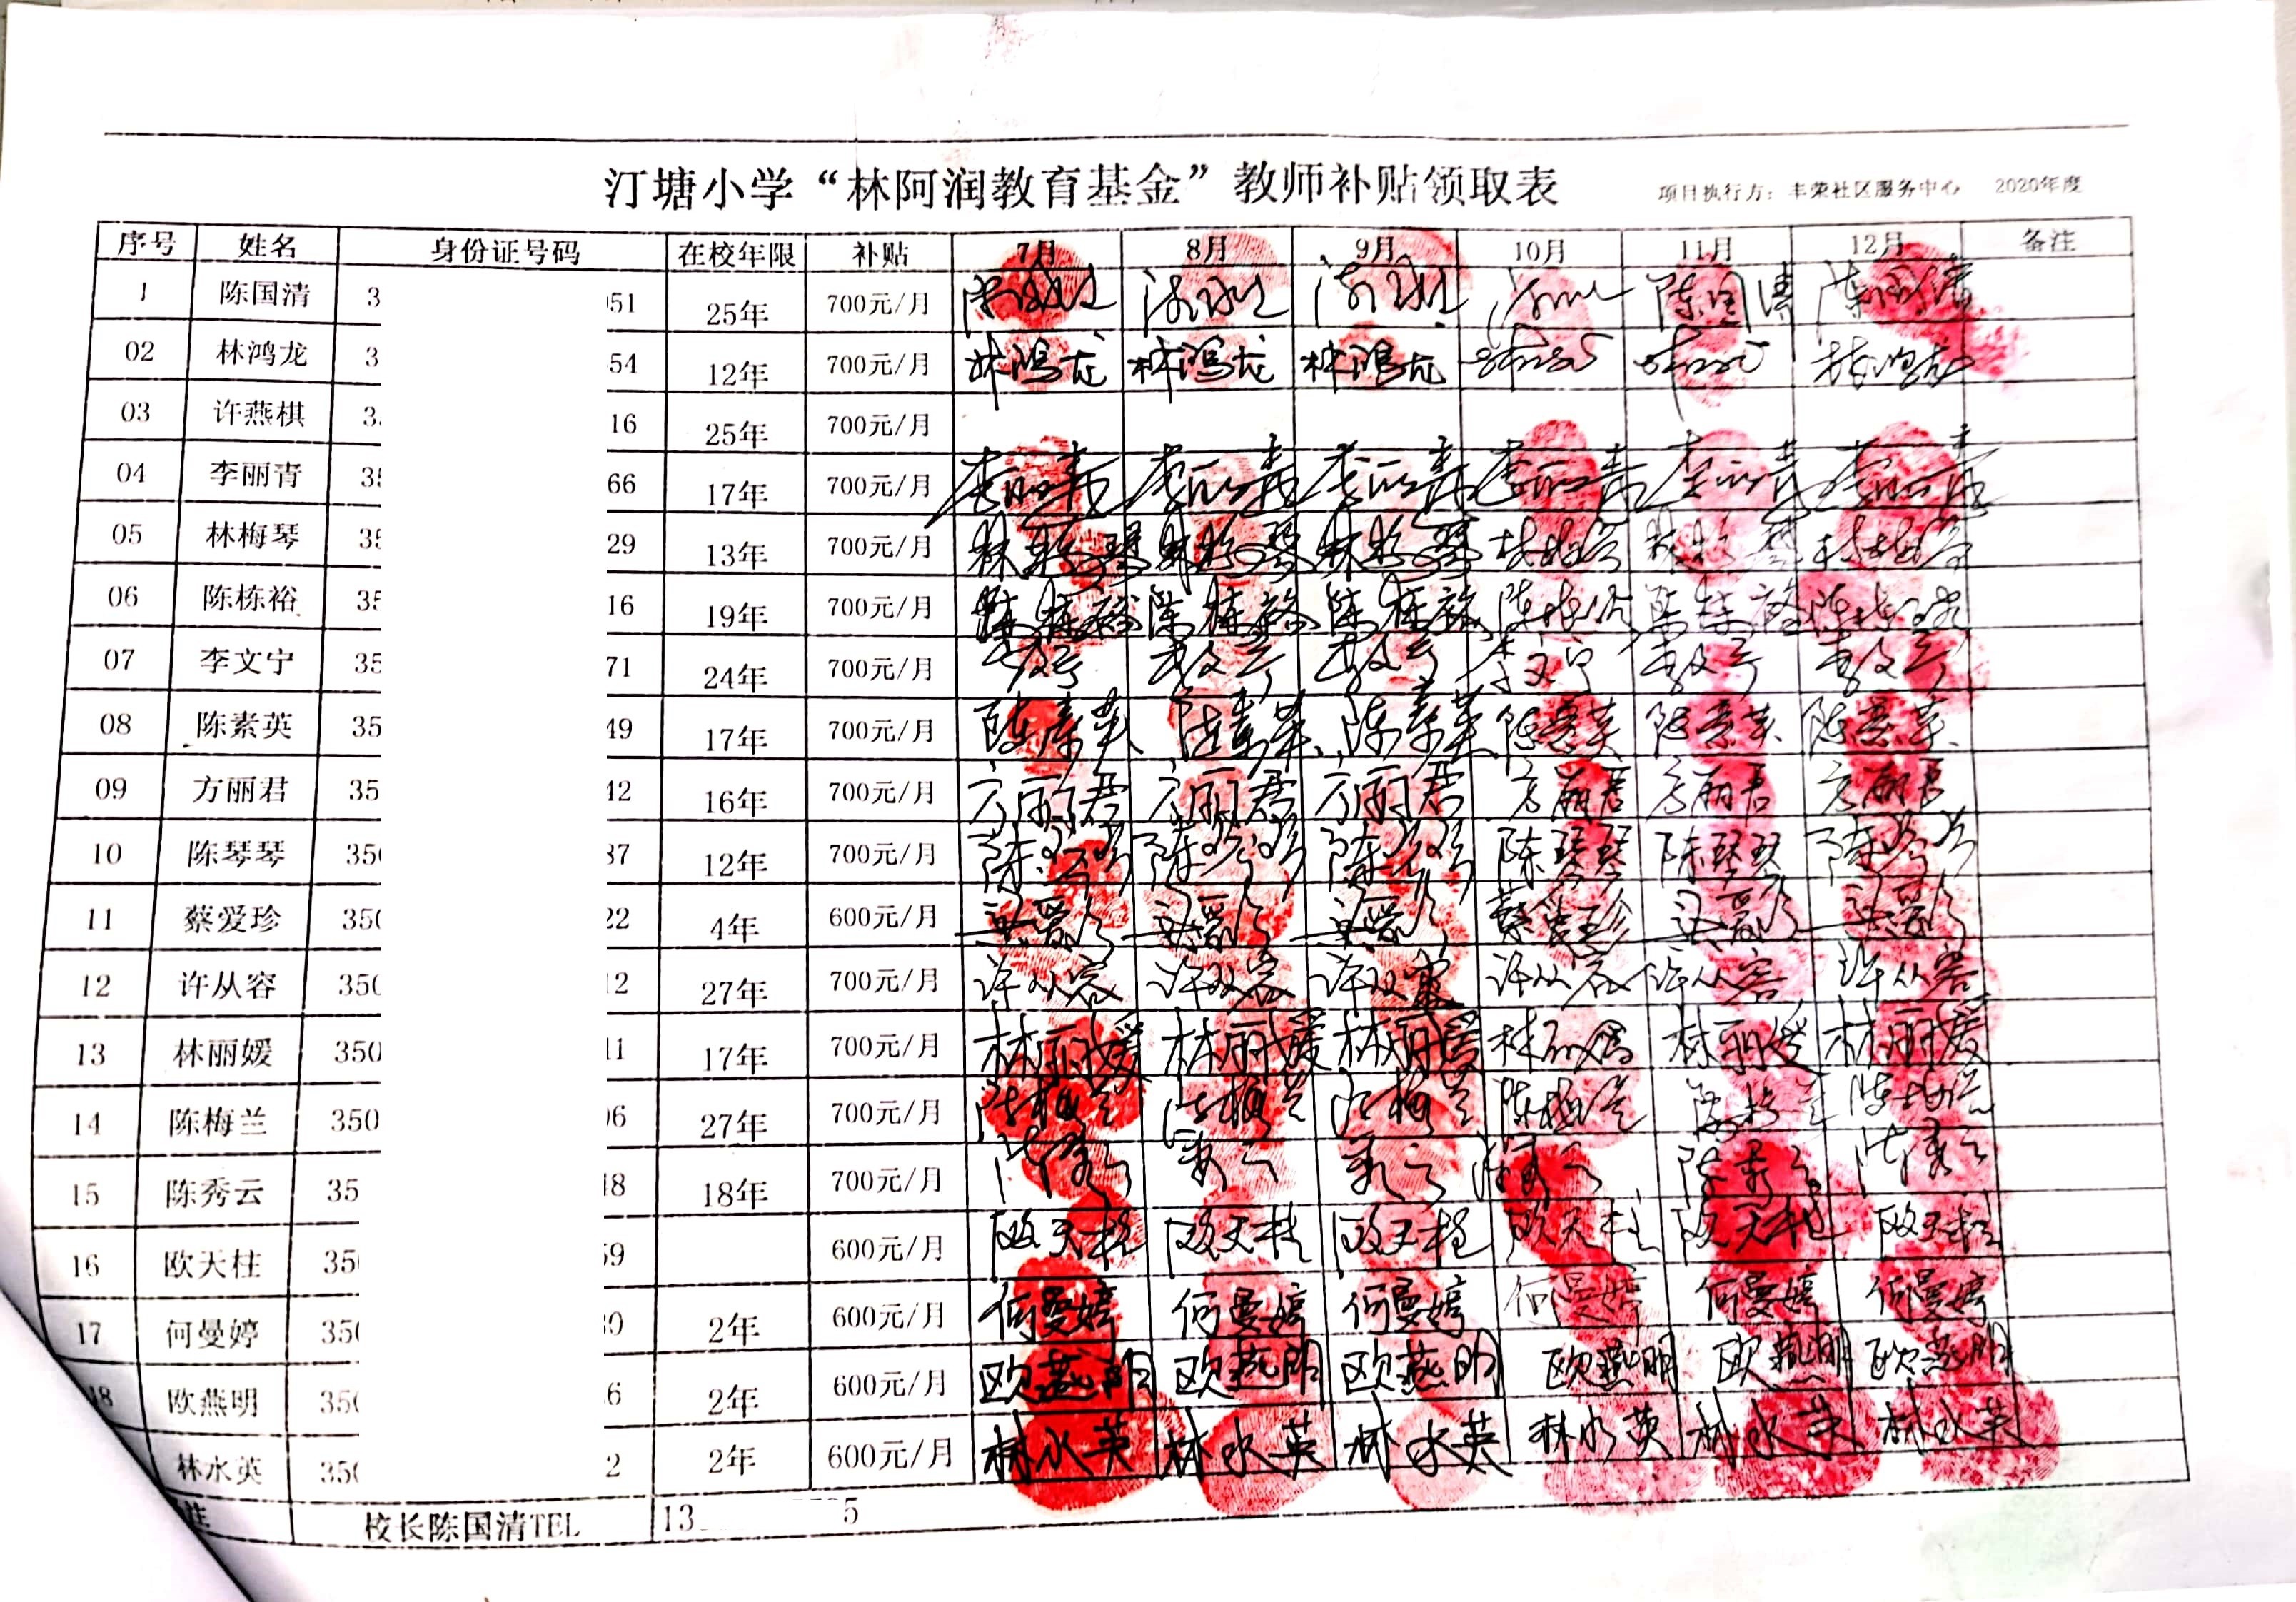 汀塘小学“林阿润教育基金”教师补贴领取表 项目执行方：丰荣社区服务中心 2020年度
序号 姓名 身份证号码 在校年限 补贴 7月 8月 9月 10月 11月 12月 备注
1 陈国清 3 051 25年 700元/月 陈国清 陈国清
02 林鸿龙 3 54 12年 700元/月 林鸿龙 林鸿龙 林鸿龙 林鸿龙
03 许燕棋 3 16 25年 700元/月
04 李丽青 35 66 17年 700元/月 李丽青 李丽青 李丽青 李丽青 李丽青 李丽青
05 林梅琴 35 29 13年 700元/月 林梅琴 林梅琴 林梅琴 林梅琴 林梅琴 林梅琴
06 陈栋裕 35 16 19年 700元/月 陈栋裕 陈栋裕 陈栋裕 陈栋裕 陈栋裕 陈栋裕
07 李文宁 35 71 24年 700元/月 李文宁 李文宁 李文宁 李文宁 李文宁 李文宁
08 陈素英 35 49 17年 700元/月 陈素英 陈素英 陈素英 陈素英 陈素英 陈素英
09 方丽君 35 42 16年 700元/月 方丽君 方丽君 方丽君 方丽君 方丽君 方丽君
10 陈琴琴 350 37 12年 700元/月 陈琴琴 陈琴琴 陈琴琴 陈琴琴 陈琴琴 陈琴琴
11 蔡爱珍 350 22 4年 600元/月 蔡爱珍 蔡爱珍 蔡爱珍 蔡爱珍 蔡爱珍 蔡爱珍
12 许从容 350 12 27年 700元/月 许从容 许从容 许从容 许从容 许从容 许从容
13 林丽媛 350 11 17年 700元/月 林丽媛 林丽媛 林丽媛 林丽媛 林丽媛 林丽媛
14 陈梅兰 350 06 27年 700元/月 陈梅兰 陈梅兰 陈梅兰 陈梅兰 陈梅兰 陈梅兰
15 陈秀云 35 18 18年 700元/月 陈秀云 秀云 秀云 陈秀云 陈秀云 陈秀云
16 欧天柱 35 59 600元/月 欧天柱 欧天柱 欧天柱 欧天柱 欧天柱 欧天柱
17 何曼婷 350 39 2年 600元/月 何曼婷 何曼婷 何曼婷 何曼婷 何曼婷 何曼婷
18 欧燕明 350 6 2年 600元/月 欧燕明 欧燕明 欧燕明 欧燕明 欧燕明 欧燕明
林水英 350 2 2年 600元/月 林水英 林水英 林水英 林水英 林水英 林水英
校长陈国清TEL 13 5